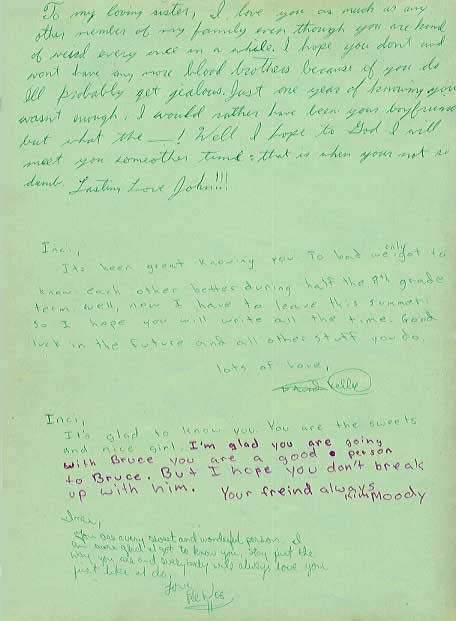 To my loving sister, I love you as much as any
other member of my family even though you are kind
of weird every once in a while. I hope you don't and
won't have any more blood brothers because if you do
Ill probably get jealous. Just one year of knowing you
wasn't enough. I would rather have been your boyfriend
but what the ___! Well I hope to God I will
meet you someother time: that is when your not so
dumb. Lasting Love John!!!
Inci,
Its been great knowing you To bad we only got to
know each other better during half the 8th grade
term well, now I have to leave this summer
so I hope you will write all the time. Good
luck in the future and all other stuff you do.
lots of love,
Kelly
Inci,
It's glad to know you. You are the sweets
and nice girl. I'm glad you are going
with Bruce you are a good person
to Bruce. But I hope you don't break
up with him. Your freind always
Kim Moody
Inci,
You are a very sweet and wonderful person. I
am more glad I got to know you, stay just the
way you are and everybody will always love you
just like I do,
Love